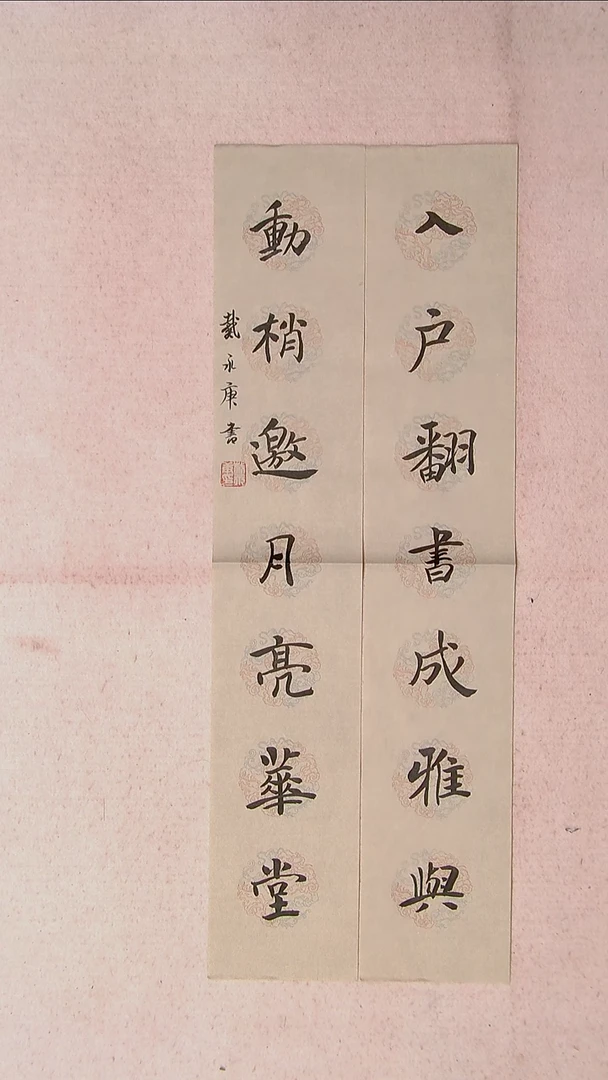 入户翻書成雅與
動梢邀月亮華堂
戴永庚書